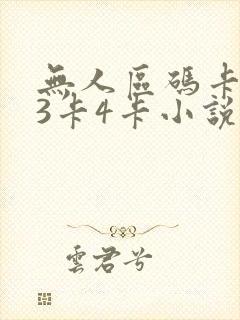 無人區碼卡
3卡4卡小說
雲君兮